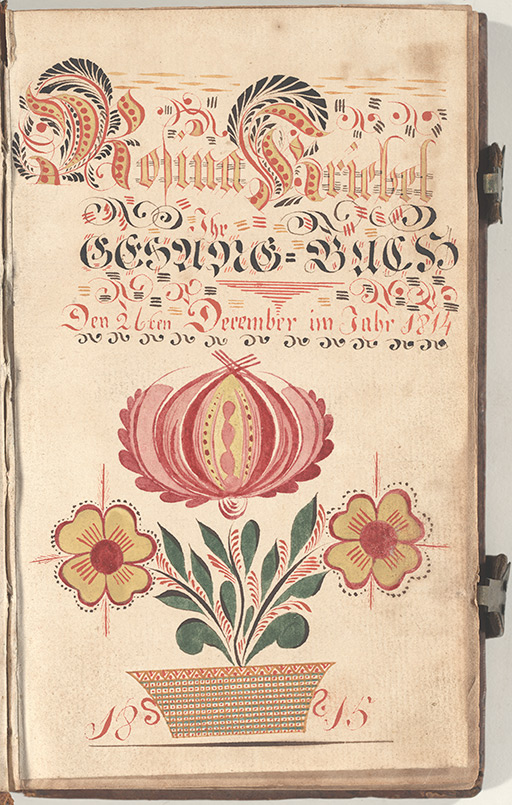 Rosina Kriebel
Ihr
GESANG=BUCH
Den 26ten December im Jahr 1814
18 15